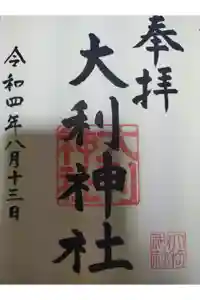 奉拝
大利神社
令和四年八月十三日